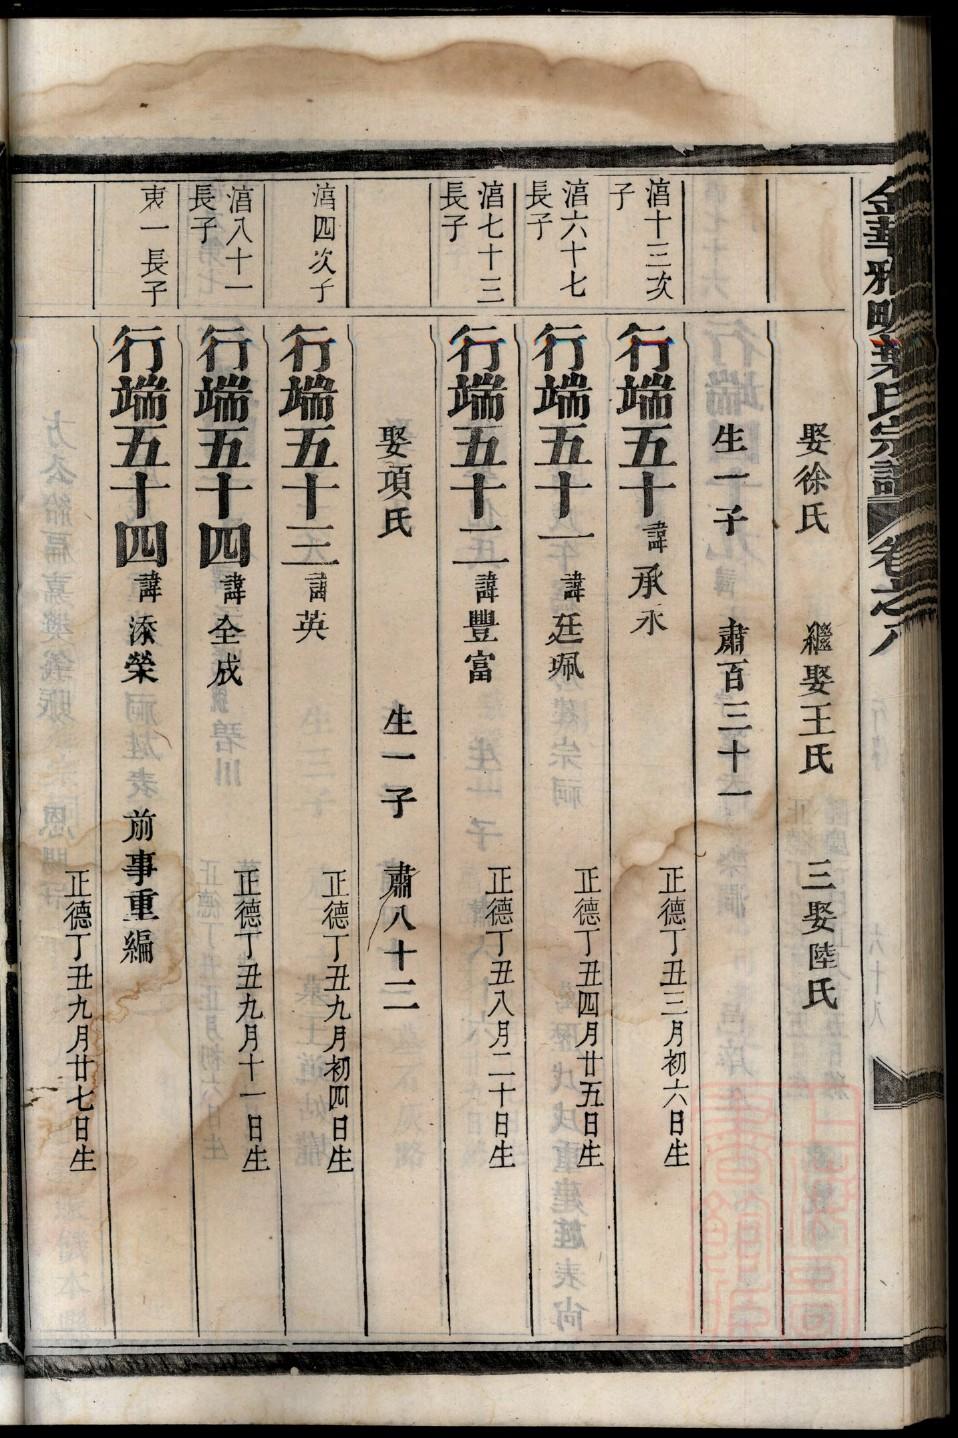 金華雅畈葉氏宗譜 卷之八
娶徐氏 繼娶王氏 三娶陸氏
生一子 肅百三十一
湻十三次子
行端五十 諱承永 正德丁丑三月初六日生
湻六十七長子
行端五十一 諱廷珮 正德丁丑四月廿五日生
湻七十三長子
行端五十二 諱豐富 正德丁丑八月二十日生
娶項氏 生一子 肅八十二
湻四次子
行端五十三 諱英 正德丁丑九月初四日生
湻八十一長子
行端五十四 諱全成 正德丁丑九月十一日生
東一長子
行端五十四 諱添榮 前事重編 正德丁丑九月廿七日生